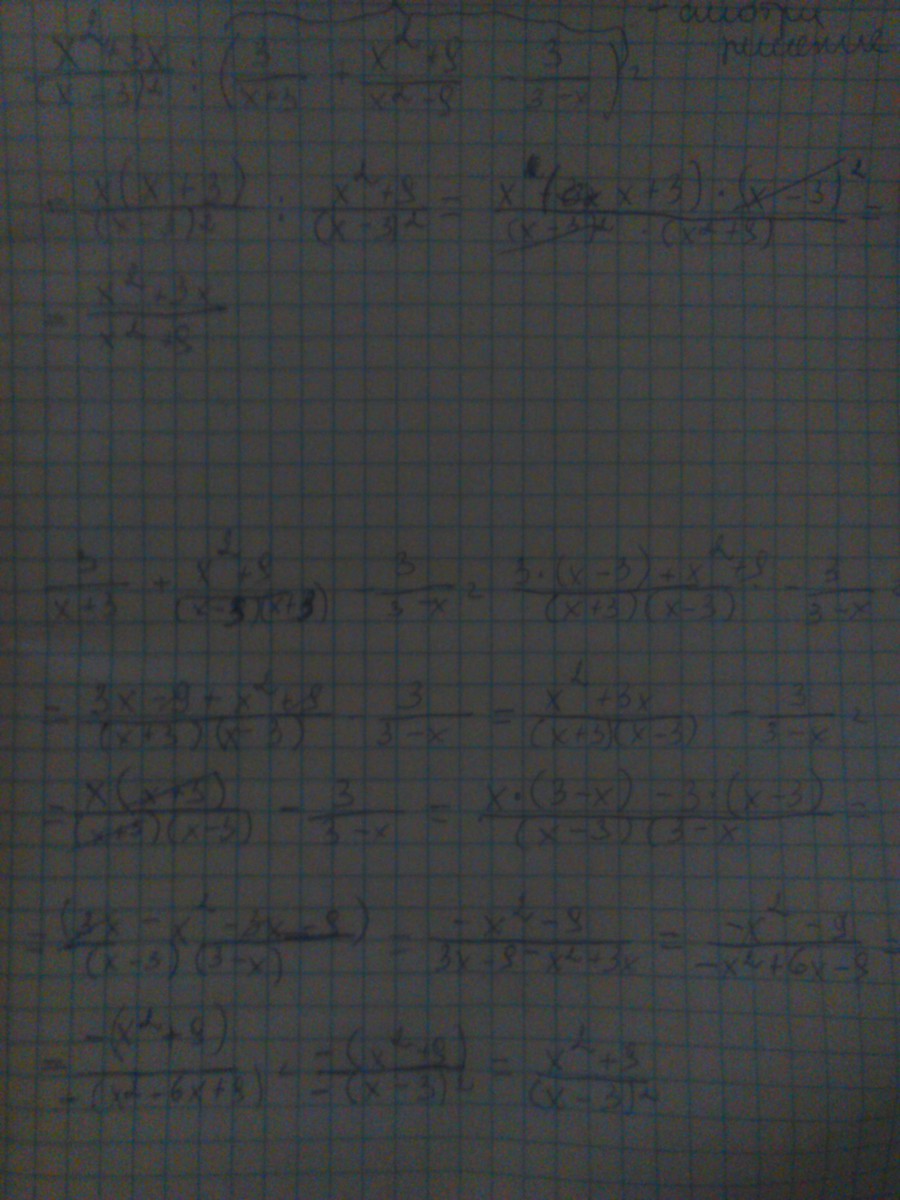 - смотри
решение
(x²+3x)/(x-3)² : (3/(x+3) + (x²+9)/(x²-9) - 3/(3-x)) =
= x(x+3)/(x-3)² : (x²+9)/(x-3)² = x(x+3)·(x-3)²/(x-3)²·(x²+9) =
= (x²+3x)/(x²+9)
3/(x+3) + (x²+9)/(x-3)(x+3) - 3/(3-x) = (3·(x-3)+x²+9)/(x+3)(x-3) - 3/(3-x) =
= (3x-9+x²+9)/(x+3)(x-3) - 3/(3-x) = (x²+3x)/(x+3)(x-3) - 3/(3-x) =
= x(x+3)/(x+3)(x-3) - 3/(3-x) = (x·(3-x)-3·(x-3))/(x-3)(3-x =
= (3x-x²-3x-9)/(x-3)(3-x) = (-x²-9)/(3x-9-x²+3x) = (-x²-9)/(-x²+6x-9) =
= -(x²+9)/-(x²-6x+9) = -(x²+9)/-(x-3)² = (x²+9)/(x-3)²